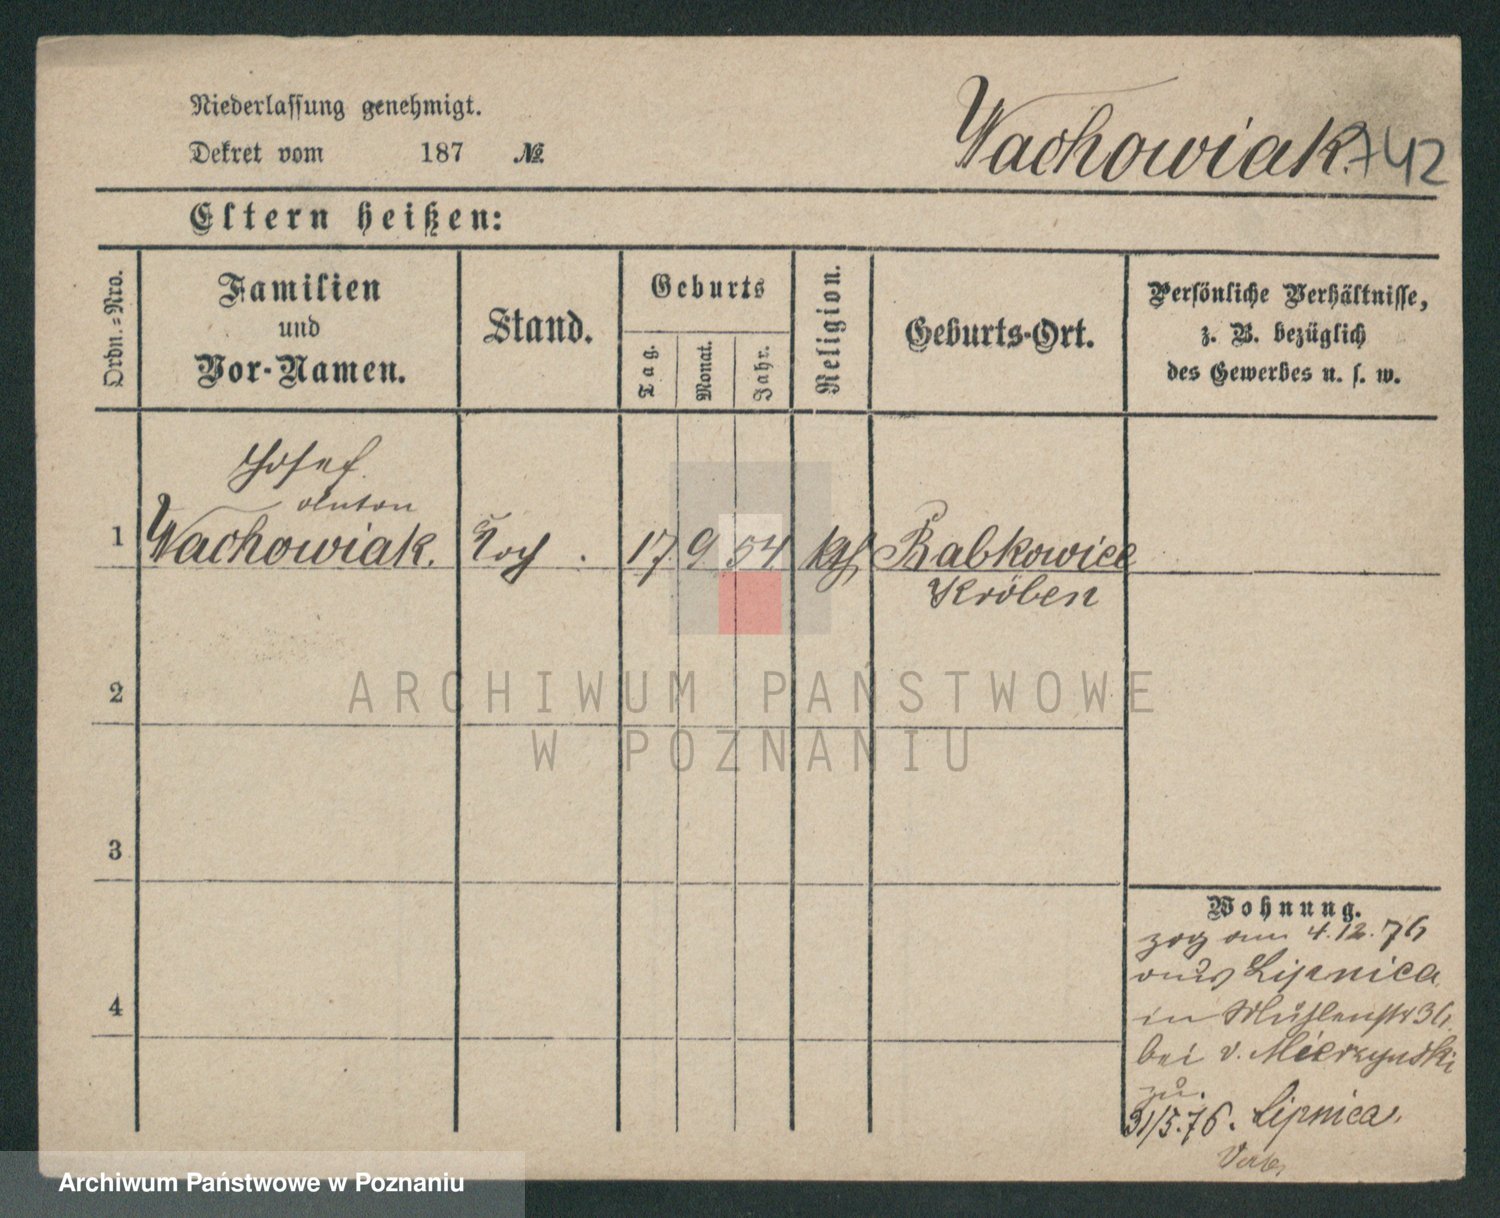 Niederlassung genehmigt.
Wachowiak. 742
Dekret vom 187 №
Eltern heißen:
Ordn.=Nro.
Familien
und
Vor-Namen.
Stand.
Geburts
Tag.
Monat.
Jahr.
Religion.
Geburts-Ort.
Persönliche Verhältnisse,
z. B. bezüglich
des Gewerbes u. s. w.
Josef
Anton
1 Wachowiak. Koch. 17 9 54 kth Babkowice
Kröben
2
3
4
Wohnung.
zog am 4.12.76
aus Lipnica
in Mühlenstr 36
bei v. Mierzynski
zu.
31/5.76. Lipnica.
ARCHIWUM PAŃSTWOWE
W POZNANIU
Archiwum Państwowe w Poznaniu